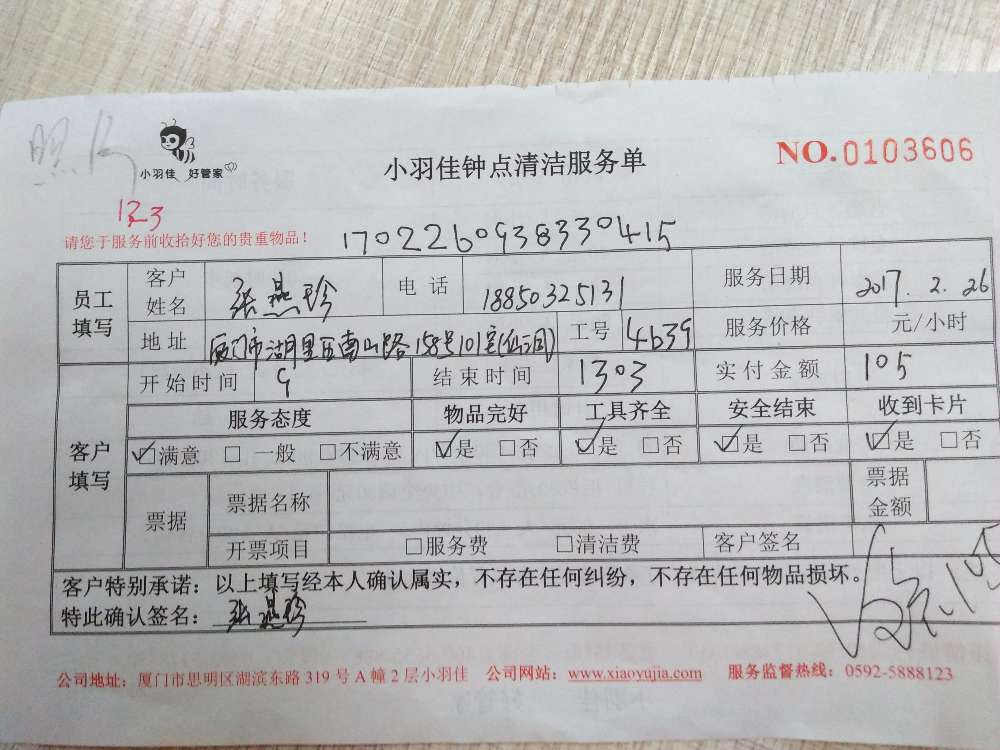 小羽佳 好管家
小羽佳钟点清洁服务单
NO.0103606
123
请您于服务前收拾好您的贵重物品！
1702260938330415
员工填写 客户姓名 张燕珍 电话 18850325131 服务日期 2017.2.26
地址 厦门市湖里区南山路158号101室 工号 4639 服务价格 元/小时
客户填写 开始时间 9 结束时间 1303 实付金额 105
服务态度 物品完好 工具齐全 安全结束 收到卡片
☑满意 □一般 □不满意 ☑是 □否 ☑是 □否 ☑是 □否 ☑是 □否
票据 票据名称 票据金额
开票项目 □服务费 □清洁费 客户签名
客户特别承诺：以上填写经本人确认属实，不存在任何纠纷，不存在任何物品损坏。
特此确认签名：张燕珍
公司地址：厦门市思明区湖滨东路319号A幢2层小羽佳 公司网站：www.xiaoyujia.com 服务监督热线：0592-5888123